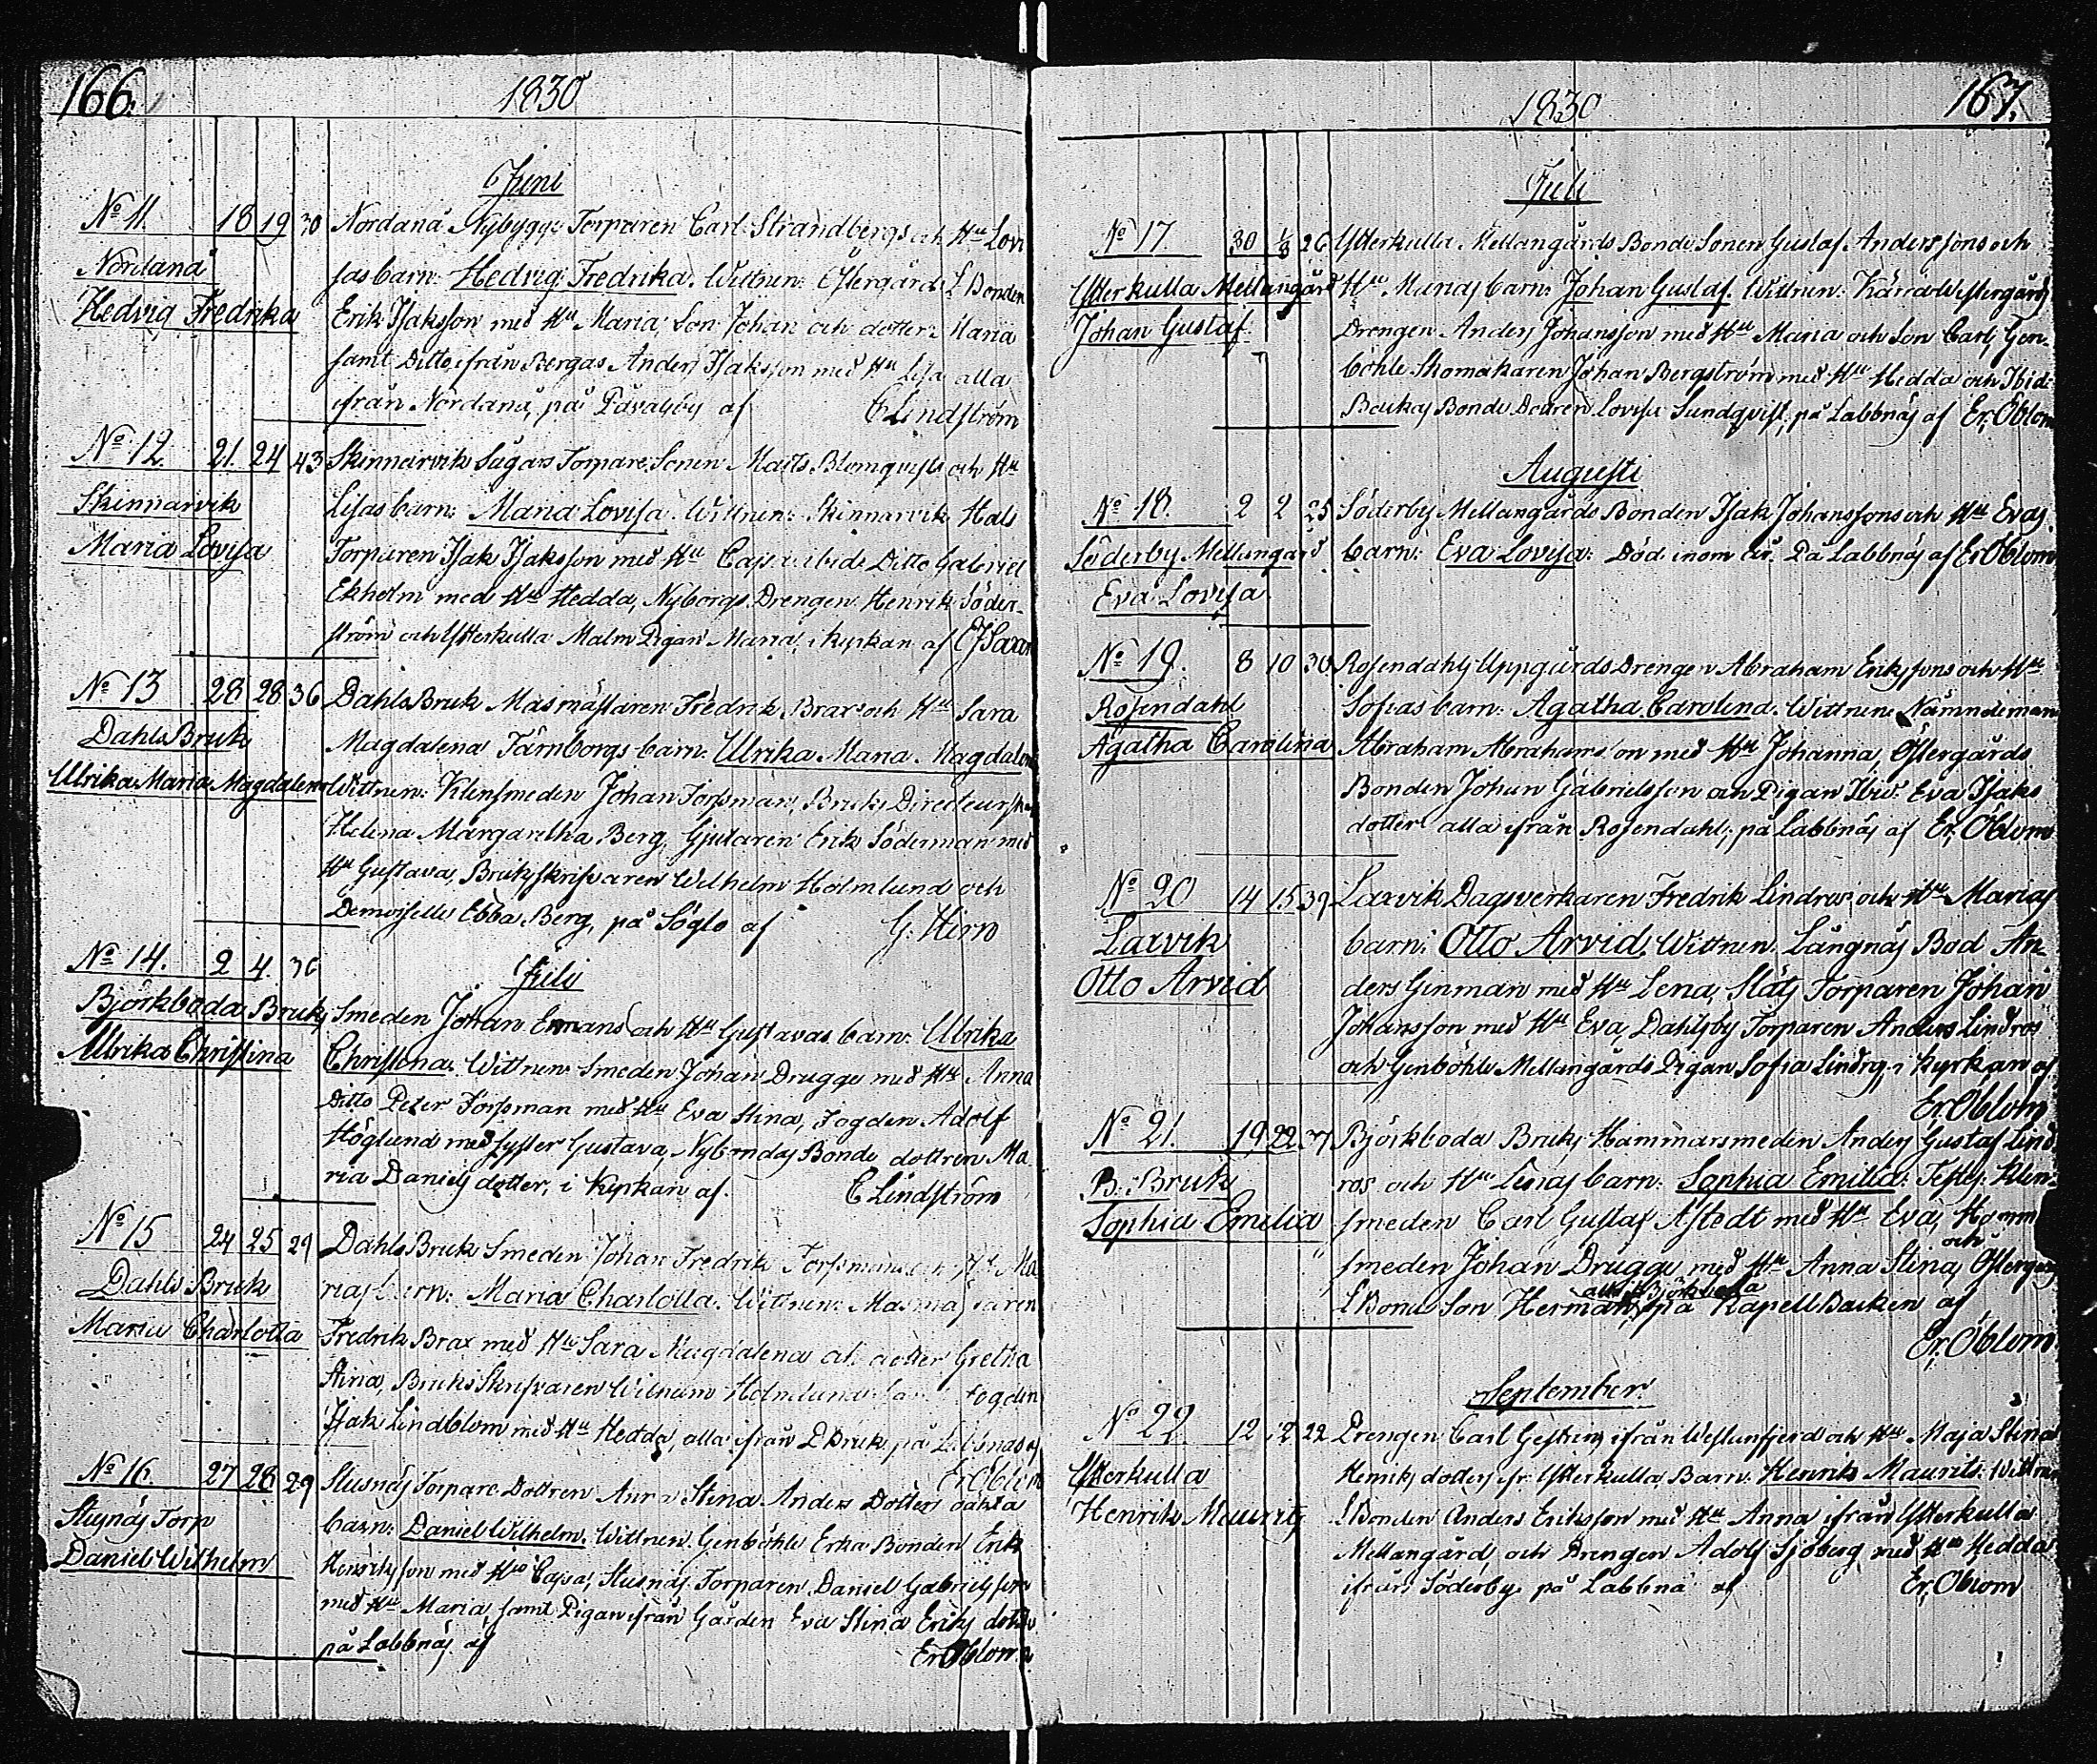 166.
1830
Juni
No 11. 18 19 30 Nordanå Nybygg: Torparen Carl Strandbergs och Hu Lovi
Nordanå
sas barn: Hedvig Fredrika. Wittnen: Östergårds L. Bonden
Hedvig Fredrika
Erik Isaksson med Hu Maria Son Johan och dotter Maria
samt Ditto ifrån Bergas Anders Isaksson med Hu Lisa alla
ifrån Nordanå, på Påvalsby af C Lindström
No 12. 21. 24 43 Skinnarvik Sågars Torpare Sonen Matts Blomqvists och Hu
Skinnarvik
Lisas barn: Maria Lovisa. Wittnen: Skinnarvik Hals
Maria Lovisa
Torparen Isak Isaksson med Hu Cajsa ibid: Ditto Gabriel
Ekholm med Hu Hedda, Nyborgs Drengen Henrik Söder-
ström och Ytterkulla Malm Pigan Maria, i kyrkan af
No 13 28 28 36 Dahls Bruk Masmästaren Fredrik Brax och Hu Sara
Dahls Bruk
Magdalena Tärnborgs barn: Ulrika Maria Magdalena
Ulrika Maria Magdalena
Wittnen: Klensmeden Johan Forssman, Bruks Directeurskan
Helena Margaretha Berg, Gjutaren Erik Söderman med
Hu Gustava, Bruksskrifvaren Wilhelm Holmlund och
Demoiselle Ebba Berg, på Söglö af G. Hirn
No 14. 2 4. 36
Juli
Björkboda Bruk
Smeden Johan Enmans och Hu Gustavas barn: Ulrika
Ulrika Christina
Christina. Wittnen: Smeden Johan Drugge med Hu Anna
Ditto Peter Forssman med Hu Eva Stina, Fogden Adolf
Höglund med syster Gustava, Nybondas Bonde dottren Ma
ria Daniels dotter, i kyrkan af. C Lindström
No 15 24 25 29 Dahls Bruk Smeden Johan Fredrik Forssmans och Hu Ma
Dahls Bruk
rias barn: Maria Charlotta. Wittnen: Masmästaren
Maria Charlotta
Fredrik Brax med Hu Sara Magdalena och dotter Gretha
Stina, Bruks Skrifvaren Wilhelm Holmlund samt Fogden
Isak Lindblom med Hu Hedda, alla ifrån D Bruk på Labbnäs af
Er. Öblom
No 16. 27 28 29 Stusnäs Torpare Dottren Anna Stina Anders Dotters oäkta
Stusnäs Torp
barn: Daniel Wilhelm. Wittnen: Genböhle Erka Bonden Erik
Daniel Wilhelm
Henriksson med Hu Cajsa, Stusnäs Torparen Daniel Gabrielsson
med Hu Maria, samt Pigan ifrån Gården Eva Stina Eriks dotter
på Labbnäs af Er. Öblom
167.
1830
Juli
No 17. 30 1/8 26 Ytterkulla Mellangårds Bonde Sonen Gustaf Anderssons och
Ytterkulla Mellangård
Hu Marias barn: Johan Gustaf. Wittnen: Kärra Westergårds
Johan Gustaf
Drengen Anders Johansson med Hu Maria och Son Carl, Gen-
böhle Skomakaren Johan Bergström med Hu Hedda och Ibid:
Bonde Lovisa Sundqvist, på Labbnäs af Er. Öblom
Augusti
No 18. 2 2 25 Söderby Mellangårds Bonden Isak Johanssons och Hu Evas
Söderby Mellangård
barn: Eva Lovisa: Död inom år. På Labbnäs af Er Öblom
Eva Lovisa
No 19. 8 10 30 Rosendahls Uppgårds Drengen Abraham Erikssons och Hu
Rosendahl
Sofias barn: Agatha Carolina. Wittnen: Nämndeman
Agatha Carolina
Abraham Abrahamsson med Hu Johanna, Östergårds
Bonden Johan Gabrielsson och Pigan Ibid: Eva Isaks
dotter alla ifrån Rosendahl, på Labbnäs af Er, Öblom
No 20 14 15 39 Laxvik Dagsverkaren Fredrik Lindros och Hu Marias
Laxvik
barn: Otto Arvid. Wittnen: Långnäs Bod An-
Otto Arvid
ders Genman med Hu Lena, Släts Torparen Johan
Johansson med Hu Eva, Dahlsby Torparen Anders Lindros
och Genböhle Mellangårds Pigan Sofia Lindrg, i kyrkan af
Er. Öblom
No 21. 19 22 37 Björkboda Bruks Hammarsmeden Anders Gustaf Lind
B. Bruk
ros och Hu Lenas barn: Sophia Emilia. Testes: Klen-
Sophia Emilia
smeden Carl Gustaf Åstedt med Hu Eva, Hamm
smeden Johan Drugge med Hu Anna Stina, och Östergårds
L Bonde Son Herman, alla i Björkboda på Kapell Backen af
Er. Öblom
September
No 22. 12 12 22 Drengen Carl Gestrins ifrån Westanfjerd och Hu Maja Stina
Ytterkulla
Henriks doters fr. Ytterkulla, Barn: Henrik Maurits. Wittnen
Henrik Maurits
L Bonden Anders Eriksson med Hu Anna ifrån Ytterkulla
Mellangård, och Drengen Adolf Sjöberg med Hu Hedda
ifrån Söderby på Labbnäs af Er, Öblom